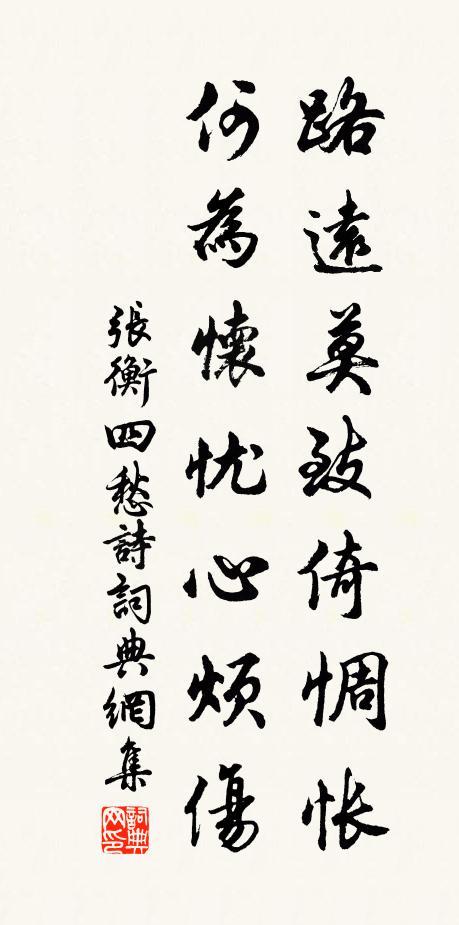 路遠莫致倚惆怅
何為懷忧心煩傷
張衡四愁詩詞典網集
詞典網印